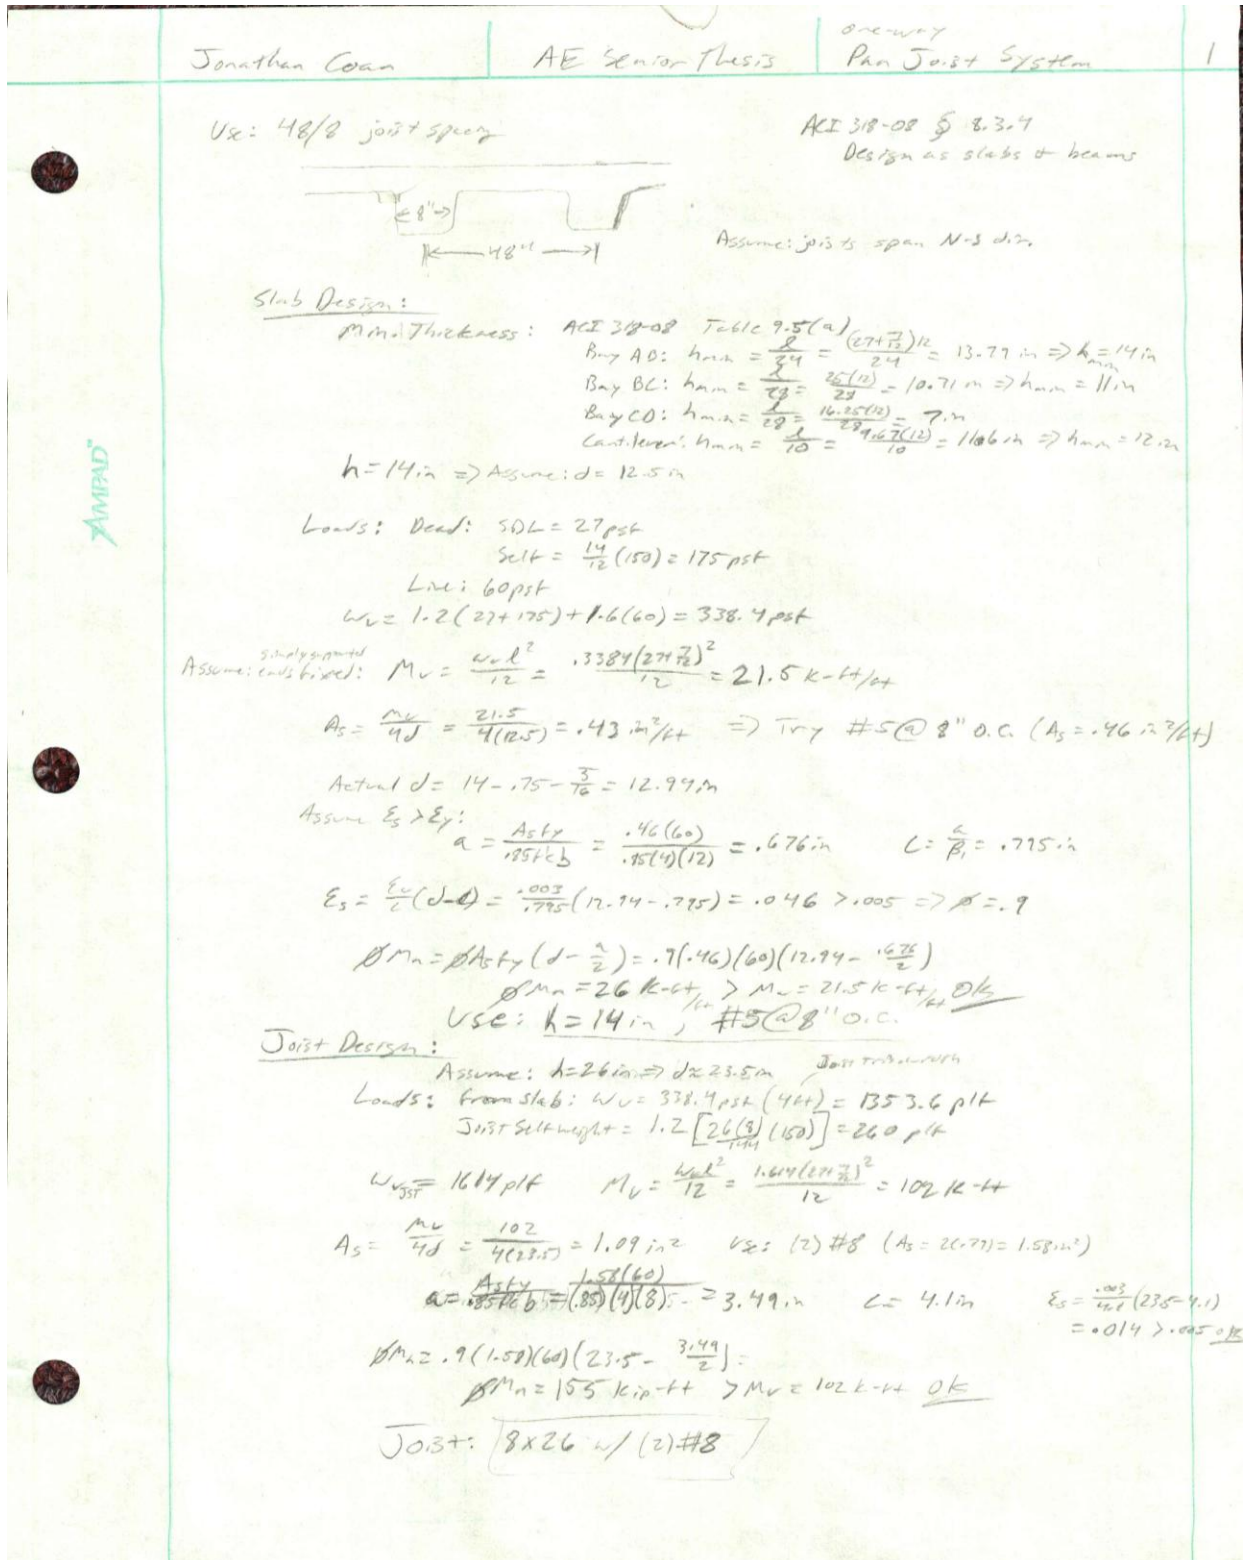 one-way
Jonathan Coan AE Senior Thesis Pan Joist System 1
Use: 48/8 joist spacing ACI 318-08 § 8.3.4
Design as slabs & beams
8"
48"
Assume: joists span N-S dir.
Slab Design:
Min. Thickness: ACI 318-08 Table 9.5(a)
Bay AB: hmin = l/24 = (27+7/12)12/24 = 13.79 in => hmin = 14 in
Bay BC: hmin = l/28 = 25(12)/28 = 10.71 in => hmin = 11 in
Bay CD: hmin = l/28 = 16.25(12)/28 = 7 in
Cantilever: hmin = l/10 = 9.67(12)/10 = 11.6 in => hmin = 12 in
h = 14 in => Assume: d = 12.5 in
AMPAD™
Loads: Dead: SDL = 27 psf
Self = 14/12 (150) = 175 psf
Live: 60 psf
wu = 1.2(27+175) + 1.6(60) = 338.4 psf
simply supported
Assume: ends fixed: Mu = wul²/12 = .3384(27+7/12)²/12 = 21.5 k-ft/ft
As = Mu/4d = 21.5/4(12.5) = .43 in²/ft => Try #5@8" o.c. (As = .46 in²/ft)
Actual d = 14 - .75 - 5/16 = 12.94 in
Assume εs > εy:
a = Asfy/.85f'cb = .46(60)/.85(4)(12) = .676 in c = a/β1 = .795 in
εs = εu/c (d-c) = .003/.795 (12.94 - .795) = .046 > .005 => ø = .9
øMn = øAsfy (d - a/2) = .9(.46)(60)(12.94 - .676/2)
øMn = 26 k-ft/ft > Mu = 21.5 k-ft/ft Ok
Use: h = 14 in, #5@8" o.c.
Joist Design:
Assume: h = 26 in => d ≈ 23.5 in Joist trib. width
Loads: From slab: wu = 338.4 psf (4ft) = 1353.6 plf
Joist Self weight = 1.2 [26(8)/144 (150)] = 260 plf
wu JST = 1614 plf Mu = wul²/12 = 1.614(27+7/12)²/12 = 102 k-ft
As = Mu/4d = 102/4(23.5) = 1.09 in² Use: (2) #8 (As = 2(.79) = 1.58 in²)
a = Asfy/.85f'cb = 1.58(60)/(.85)(4)(8) = 3.49 in c = 4.1 in εs = .003/4.1 (23.5-4.1)
= .014 > .005 ok
øMn = .9(1.58)(60)(23.5 - 3.49/2) =
øMn = 155 kip-ft > Mu = 102 k-ft Ok
Joist: 8x26 w/ (2) #8